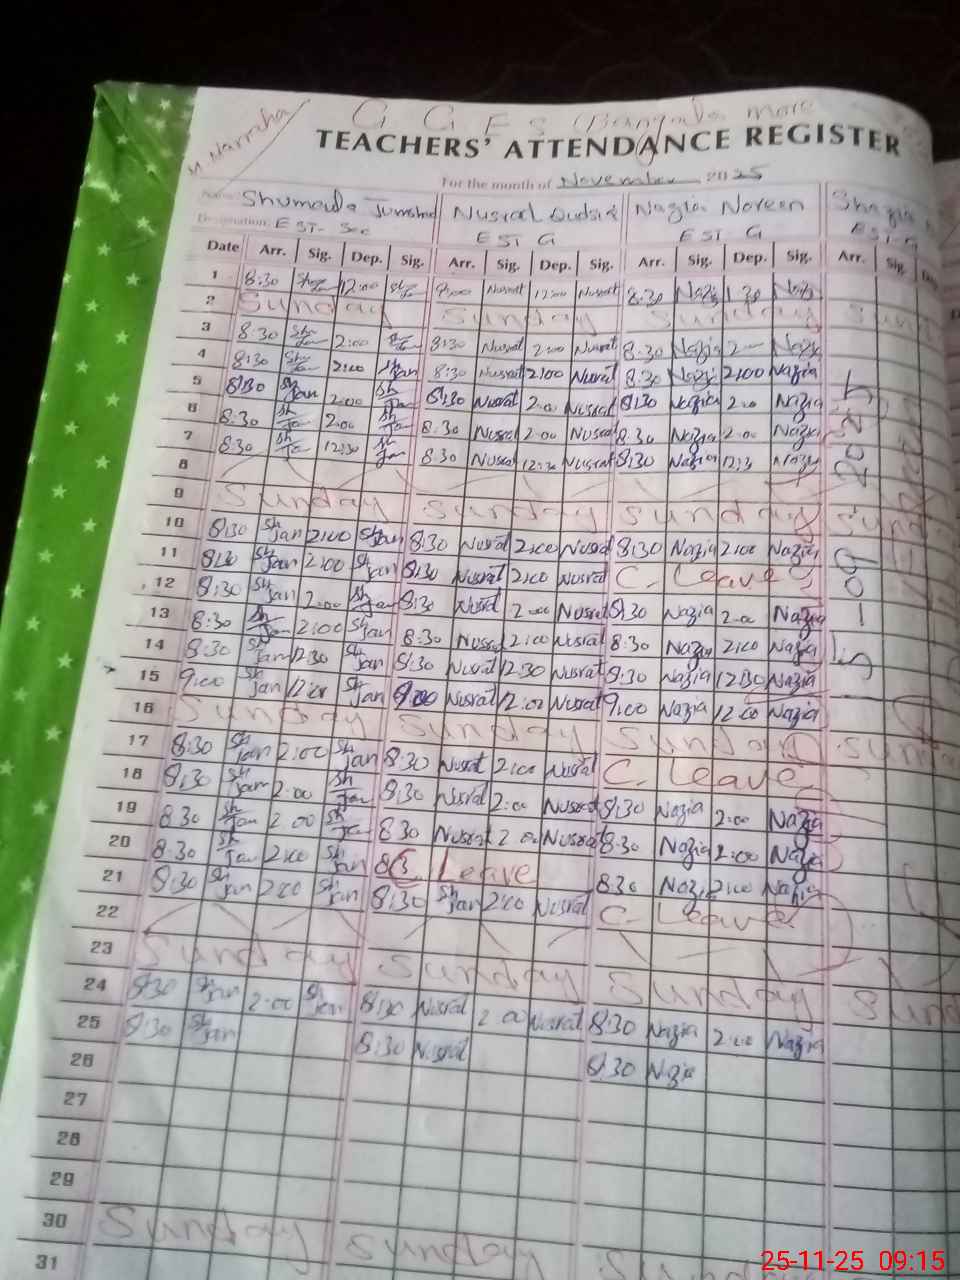 G G E S Bangala more
TEACHERS' ATTENDANCE REGISTER
For the month of November 2025
Name Shumaila Jumshed Nusrat Qudsia Nazia Noreen Shazia
Designation: EST- Sec EST G EST. G EST-G
Date Arr. Sig. Dep. Sig. Arr. Sig. Dep. Sig. Arr. Sig. Dep. Sig. Arr. Sig.
1 8:30 12:00 9:00 Nusrat 12:00 Nusrat 8:30 Nazia 1:30 Nazia
2 Sunday Sunday Sunday Sun
3 8:30 Sh/Jan 2:00 Sh/Jan 8:30 Nusrat 2:00 Nusrat 8:30 Nazia 2:00 Nazia
4 8:30 Sh/Jan 2:00 Sh/Jan 8:30 Nusrat 2:00 Nusrat 8:30 Nazia 2:00 Nazia
5 8:30 Sh/Jan 2:00 Sh/Jan 8:30 Nusrat 2:00 Nusrat 8:30 Nazia 2:00 Nazia
6 8:30 Sh/Jan 2:00 Sh/Jan 8:30 Nusrat 2:00 Nusrat 8:30 Nazia 2:00 Nazia
7 8:30 Sh/Jan 12:30 Sh/Jan 8:30 Nusrat 12:30 Nusrat 8:30 Nazia 12:30 Nazia
8
9 Sunday Sunday Sunday Sun
10 8:30 Sh/Jan 2:00 Sh/Jan 8:30 Nusrat 2:00 Nusrat 8:30 Nazia 2:00 Nazia
11 8:30 Sh/Jan 2:00 Sh/Jan 8:30 Nusrat 2:00 Nusrat C. Leave
12 8:30 Sh/Jan 2:00 Sh/Jan 8:30 Nusrat 2:00 Nusrat 8:30 Nazia 2:00 Nazia
13 8:30 Sh/Jan 2:00 Sh/Jan 8:30 Nusrat 2:00 Nusrat 8:30 Nazia 2:00 Nazia
14 8:30 Sh/Jan 12:30 Sh/Jan 8:30 Nusrat 12:30 Nusrat 8:30 Nazia 12:30 Nazia
15 9:00 Sh/Jan 12:00 Sh/Jan 9:00 Nusrat 12:00 Nusrat 9:00 Nazia 12:00 Nazia
16 Sunday Sunday Sunday Sun
17 8:30 Sh/Jan 2:00 Sh/Jan 8:30 Nusrat 2:00 Nusrat C. Leave
18 8:30 Sh/Jan 2:00 Sh/Jan 8:30 Nusrat 2:00 Nusrat 8:30 Nazia 2:00 Nazia
19 8:30 Sh/Jan 2:00 Sh/Jan 8:30 Nusrat 2:00 Nusrat 8:30 Nazia 2:00 Nazia
20 8:30 Sh/Jan 2:00 Sh/Jan C. Leave 8:30 Nazia 2:00 Nazia
21 8:30 Sh/Jan 2:00 Sh/Jan 8:30 Sh/Jan 2:00 Nusrat C- Leave
22
23 Sunday Sunday Sunday Sund
24 8:30 Sh/Jan 2:00 Sh/Jan 8:30 Nusrat 2:00 Nusrat 8:30 Nazia 2:00 Nazia
25 8:30 Sh/Jan 8:30 Nusrat 8:30 Nazia
26
27
28
29
30 Sunday Sunday Sunda
31
25-11-25 09:15